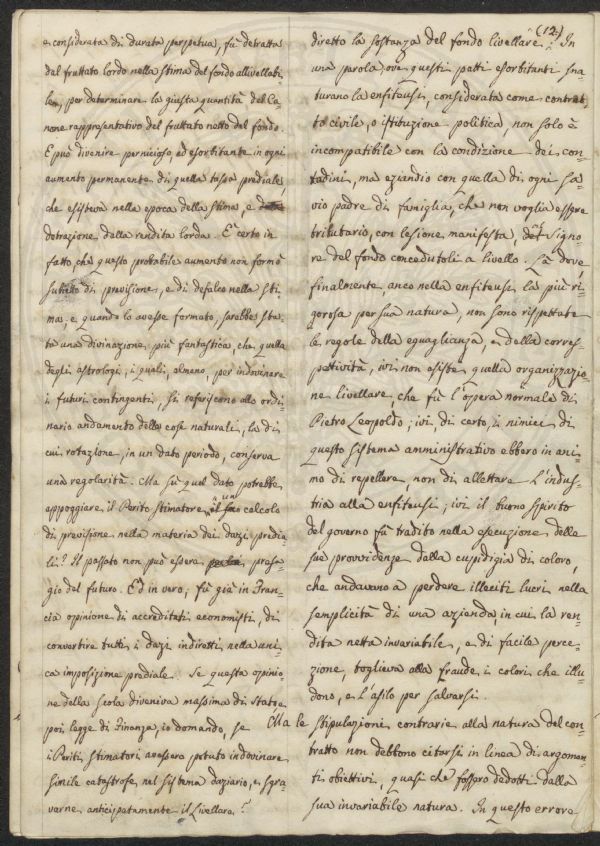 e considerata di durata perpetua, fù detratta
dal fruttato lordo nella stima del fondo allivellabi-
le, per determinare la giusta quantità del Ca-
none rappresentativo del fruttato netto del fondo.
E può divenire pernicioso, ed esorbitante in ogni
aumento permanente di quella tassa prediale,
che esisteva nella epoca della stima, e
detrazione della rendita lorda. È certo in
fatto, che questo probabile aumento non formò
subietto di previsione, e di defalco nella sti-
ma, e quando lo avesse formato, sarebbe sta-
ta una divinazione più fantastica, che quella
degli astrologi, i quali almeno, per indovinare
i futuri contingenti, si referiscono allo ordi-
nario andamento delle cose naturali, la di
cui rotazione, in un dato periodo, conserva
una regolarità. Ma sù qual dato potrebbe
appoggiare il Perito stimatore, un calcolo
di previsione nella materia dei dazj predia-
li? Il passato non può essere presa-
gio del futuro. Ed in vero, fù già in Fran-
cia opinione di accreditati economisti, di
convertire tutti i dazj indiretti nella uni-
ca imposizione prediale. Se questa opinio-
ne della scola diveniva massima di Stato, e
poi legge di Finanza, io domando, se
i Periti stimatori avessero potuto indovinare
simile catastrofe nel sistema daziario, e sgra-
varne anticipatamente il Livellaro?
(12)
diretto la sostanza del fondo livellare? In
una parola, ove questi patti esorbitanti sna-
turano la enfiteusi, considerata come contrat-
to civile, o istituzione politica, non solo è
incompatibile con la condizione dei con-
tadini, ma eziandio con quella di ogni sa-
vio padre di famiglia, che non voglia essere
tributario, con lesione manifesta, del Signo-
re del fondo concedutoli a livello. Là dove,
finalmente, anco nella enfiteusi la più ri-
gorosa per sua natura, non sono rispettate
le regole della eguaglianza, e della corres-
pettività, ivi non esiste quella organizzazio-
ne livellare che fù l'opera normale di
Pietro Leopoldo; ivi di certo, i nimici di
questo sistema amministrativo ebbero in ani-
mo di repellere, non di allettare l'indus-
tria alla enfiteusi; ivi il buono spirito
del governo fù tradito nella esecuzione delle
sue provvidenze dalla cupidigia di coloro,
che andavano a perdere illeciti lucri nella
semplicità di una azienda, in cui la ren-
dita netta invariabile, e di facile perce-
zione, toglieva alla fraude i colori che illu-
dono, e l'asilo per salvarsi.
Ma le stipulazioni contrarie alla natura del con-
tratto non debbono citarsi in linea di argomen-
ti obiettivi, quasi che fossero dedotti dalla
sua invariabile natura. In questo errore